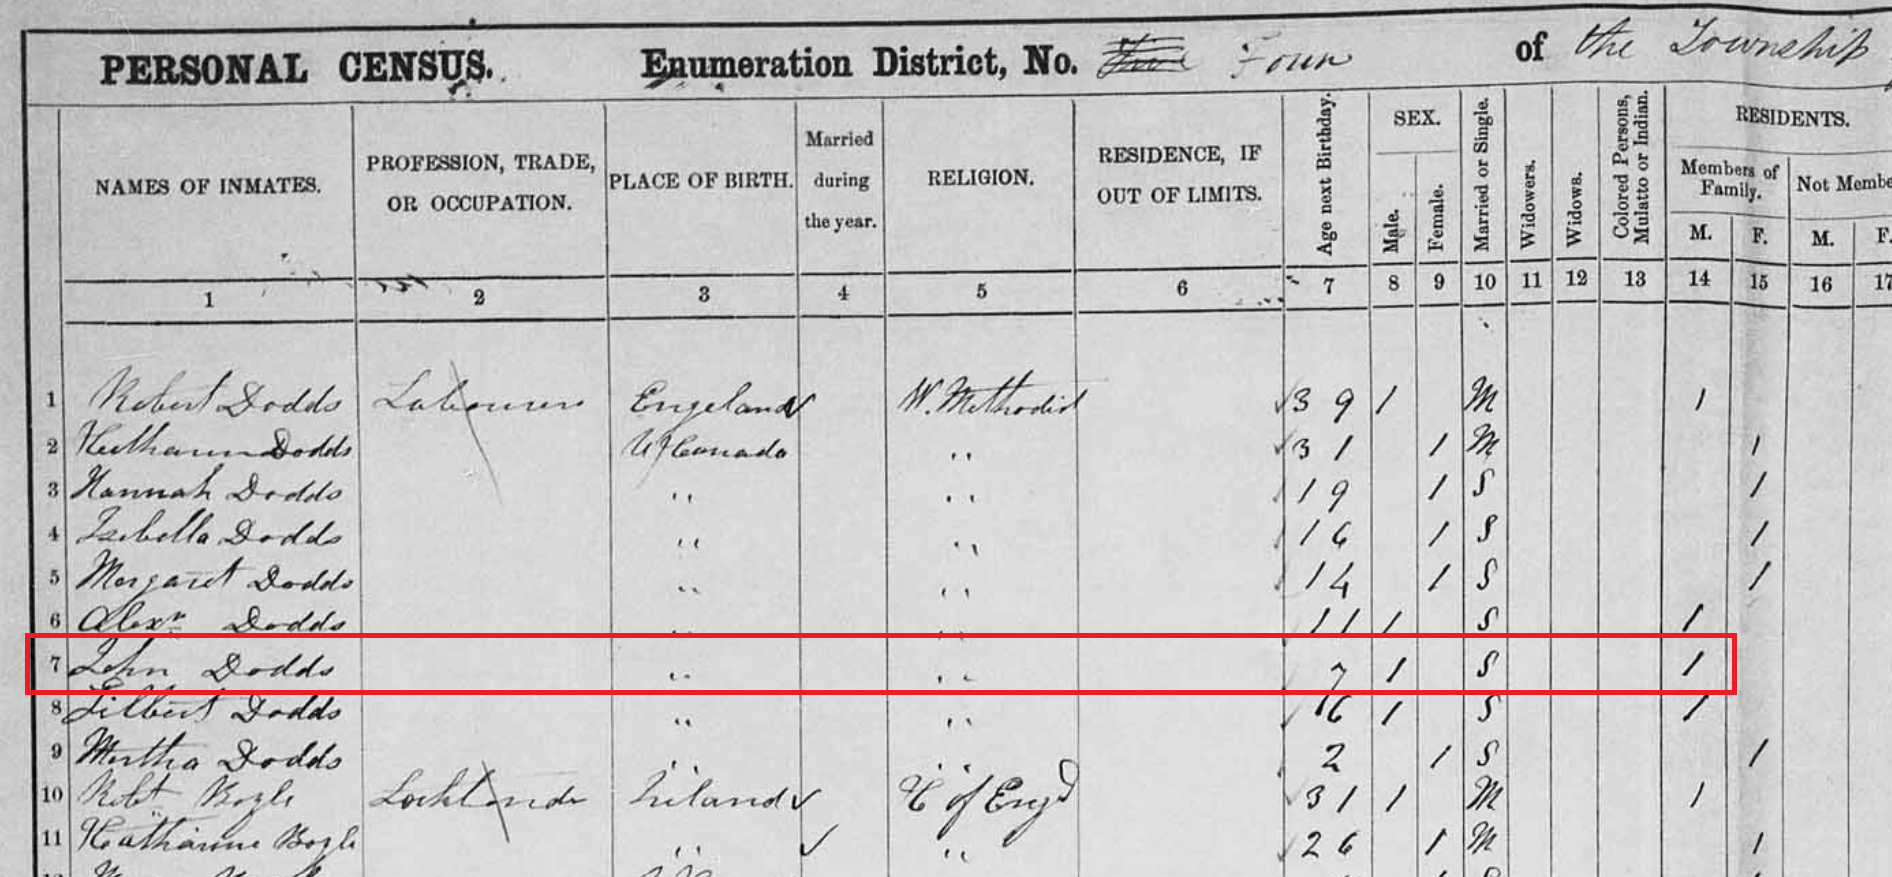 PERSONAL CENSUS. Enumeration District, No. Five Four of the Township
NAMES OF INMATES. PROFESSION, TRADE, OR OCCUPATION. PLACE OF BIRTH. Married during the year. RELIGION. RESIDENCE, IF OUT OF LIMITS. Age next Birthday. SEX. Male. Female. Married or Single. Widowers. Widows. Colored Persons, Mulatto or Indian. RESIDENTS. Members of Family. M. F. Not Membe M. F.
1 2 3 4 5 6 7 8 9 10 11 12 13 14 15 16 17
1 Robert Dodds Labourer Engeland ✓ W. Methodist ✓ 39 1 M 1
2 Dodds U Canada " ✓ 31 1 M 1
3 Hannah Dodds " " 19 1 S 1
4 Isabella Dodds " " 16 1 S 1
5 Margaret Dodds " " 14 1 S 1
6 Alexr Dodds " " 11 1 S 1
7 John Dodds " " 7 1 S 1
8 Gilbert Dodds " " 1 S 1
9 Martha Dodds " " 2 1 S 1
10 Robt Bogle Ireland ✓ C of Engd 31 1 M 1
11 Katharine Bogle " ✓ " 26 1 M 1